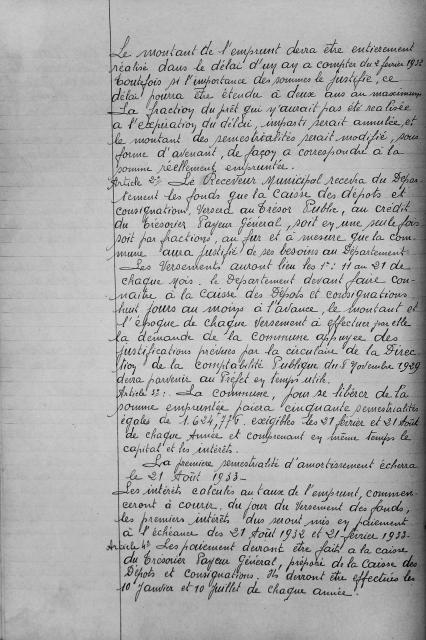 Le montant de l'emprunt devra être entièrement
réalisé dans le délai d'un an a compter du 2 février 1932
toutefois si l'importance des sommes le justifie, ce
délai pourra être étendu à deux ans au maximum
La fraction du prêt qui n'aurait pas été réalisée
a l'expiration du délai, imparti serait annulée, et
le montant des semestrialités serait modifié, sous
forme d'avenant, de façon a correspondre à la
somme réellement empruntée.
Article 2°: Le Receveur Municipal recevra du Dépar-
tement les fonds que la Caisse des dépots et
consignations, versera au Trésor Public, au crédit
du Trésorier Payeur Général, soit en une seule fois
soit par fractions, au fur et à mesure que la com-
mune aura justifié de ses besoins au Département
Les Versements auront lieu les 1er: 11 au 21 de
chaque Mois. le Département devant faire con-
naitre à la Caisse des Dépots et consignations
huit jours au moins à l'avance, le montant et
l'époque de chaque Versement à effectuer par elle
la demande de la Commune appuyée des
justifications prévues par la circulaire de la Direc-
tion de la Comptabilité Publique du 8 Novembre 1929
devra parvenir au Préfet en temps utile.
Article 3°: La Commune, pour se libérer de la
somme empruntée paiera cinquante semestrialités
égales de 1.624,77 exigibles les 21 février et 21 Août
de chaque Année et comprenant en même temps le
capital et les intérêts.
La première semestrialité d'amortissement écherra
le 21 Août 1933-
Les intérêts calculés au taux de l'emprunt, commen-
ceront à courir du jour du Versement des fonds,
les premiers intérêts dus seront mis en paiement
à l'échéance des 21 Août 1932 et 21 février 1933-
Article 4° Les paiement devront être faits a la caisse
du Trésorier Payeur Général, préposé de la Caisse des
Dépots et Consignations. Ils devront être effectués les
10 Janvier et 10 juillet de chaque année.